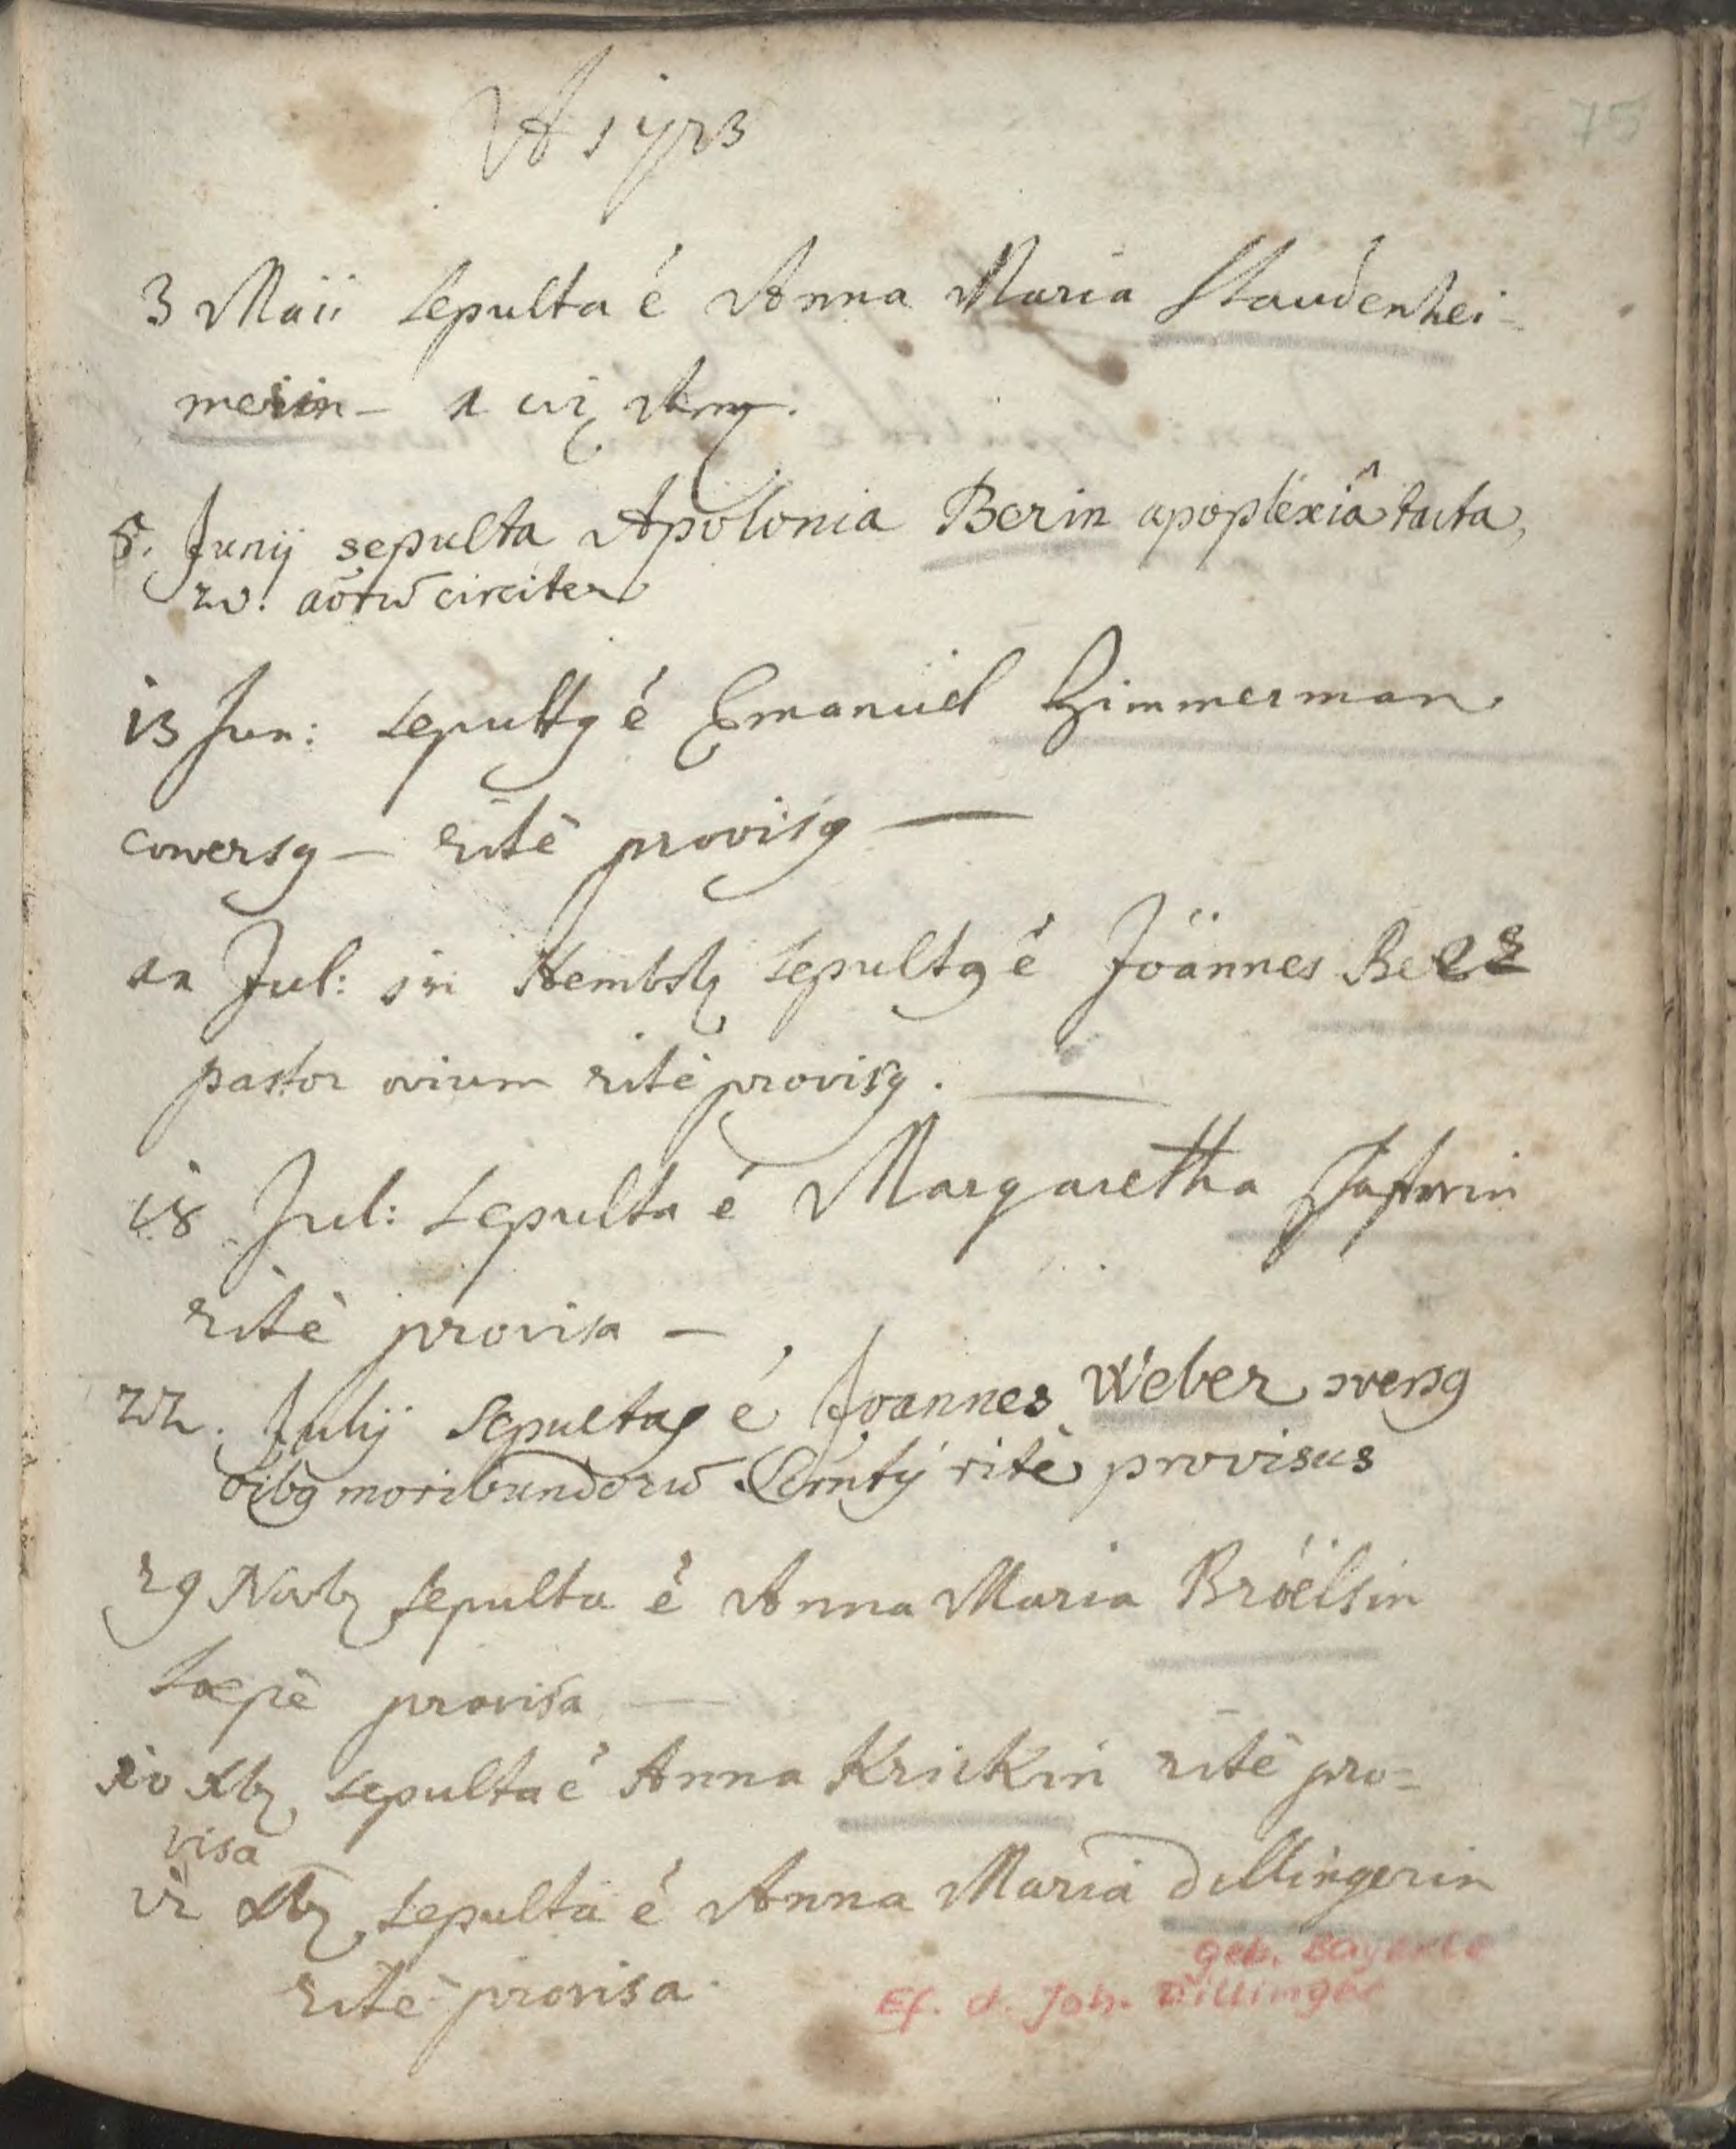 A 1723
75
3 Maii sepulta é Anna Maria Staudenhei-
merin –
5. Junij sepulta Apolonia Berin apoplexiâ tacta,
circiter
13 Jun: sepultq é Emanuel Zimmerman
conversq – ritè provisq —
Jul: in Hembsb sepultq é Joannes Belz
pastor ovium ritè provisq. —
18 Jul: sepulta é Margaretha
ritè provisa –
22. Julij sepultq é Joannes Weber
oibq moribundorū ritè provisus
29 Novb sepulta é Anna Maria Bröelsin
saepè provisa —
10 Xb sepulta é Anna Krickin ritè pro=
visa
Xb sepulta é Anna Maria dillingerin
ritè provisa.
geb. Bayerle
Ef. d. Joh. Dillinger